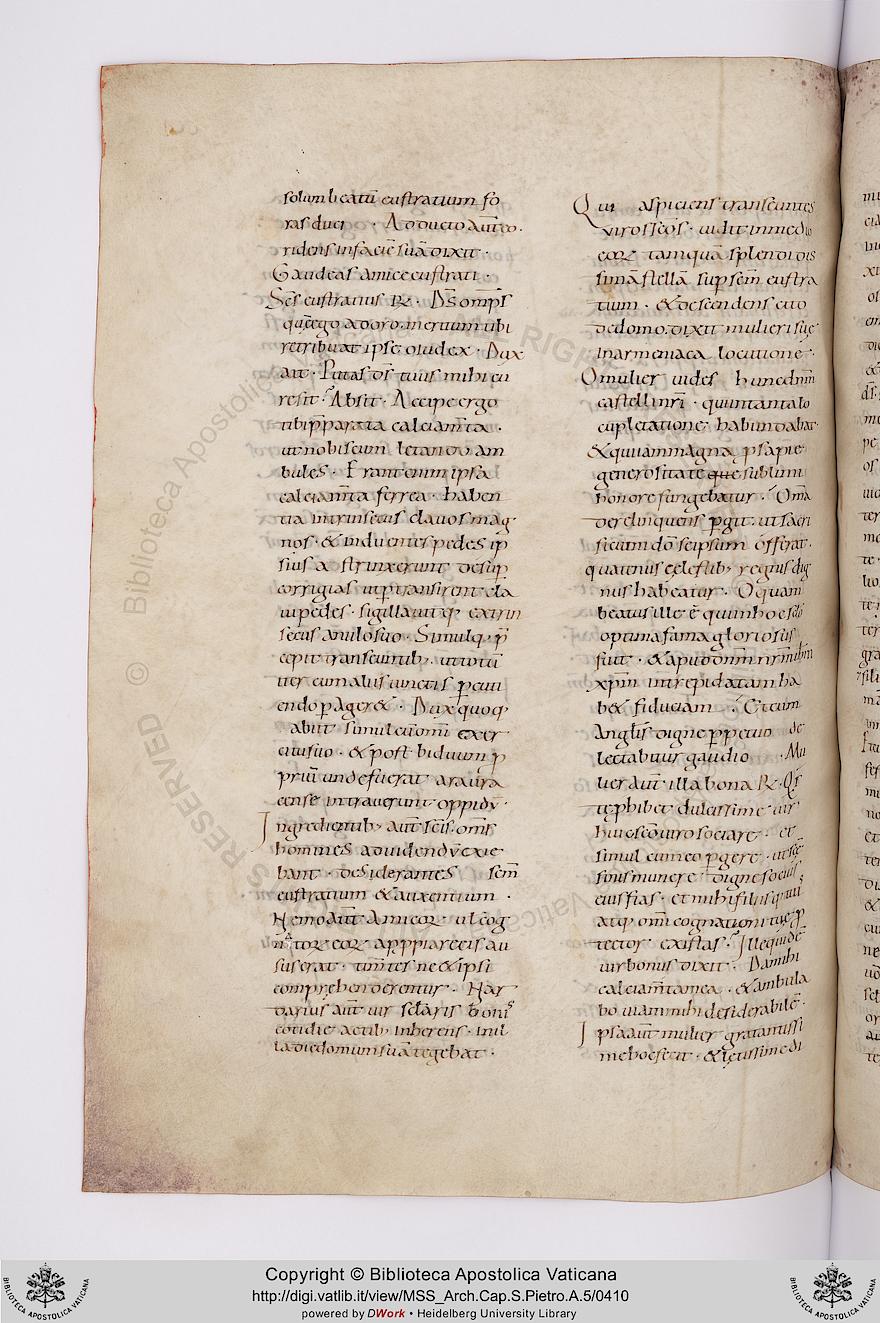 solum beatū eustratium fo
ras duci · Adducto aut̄ eo ·
ridens in faciē suā dixit ·
Gaudeas amice eustrati ·
Sc̄s eustratius R̄ · Ds̄ omp̄s
quē ego adoro · meritum tibi
retribuat ipse o iudex · Dux
ait · Putas ds̄ tuus mihi cu
resit · Absit · Accipe ergo
tibi p̄parata calciam̄ta ·
ut nobiscum letando am
bules · Erant enim ipsa
calciam̄ta ferrea · haben
tia intrinsecus clavos mag
nos · & induentes pedes ip
sius adstrinxerunt desup̄
corrigias ut p̄transirent cla
ui pedes · sigillauitq; extrin
secus anulo suo · Simulq; p̄
cepit transeuntib; · ut totū
iter cum aliis iunctis p̄cuti
endo p̄ager& · Dux quoq;
abiit simul cū om̄i exer
citu suo · & post biduum p̄
priū unde fuerat araura
cense intrauerunt oppidū ·
Ingredientib; aut̄ sc̄is · om̄s
homines ad uidendū exie
bant · desiderantes sc̄m
eustratium & auxentium ·
Nemo aut̄ amicor ul cog
nitor eor appropiare eis au
sus erat · tim̄tes ne & ipsi
comprehenderentur · Mar
darius aut̄ uir scl̄aris bonis
cotidie actib; inherens · inil
la die domum suā tegebat ·
Qui aspiciens transeuntes
viros sc̄os · uidit in medio
eor tamquā splendidis
simā stellā sup̄ sc̄m eustra
tium · & descendens cito
de domo · dixit mulieri suę
in armeniaca locutione ·
O mulier uides hunc dn̄m
castelli nr̄i · qui in tanta lo
cupletatione habundabat
& qui in magna p̄sapie
generositate que sublimi
honore fungebatur · Om̄a
derelinquens p̄git · ut sacri
ficium dō seipsum offerat ·
quatinus cęlestib; regnis dig
nus habeatur · O quam
beatus ille ē qui in hoc sclō
optima fama gloriosus
fuit · & apud dn̄m nr̄m ihm̄
xpm̄ intrepidatam ha
b& fiduciam · Et cum
Anglis digne p̄petuo de
lectabitur gaudio · Mu
lier aut̄ illa bona R̄ · Qs
te phibet dulcissime uir
huic sc̄o uiro sociare · et
simul cum eo p̄gere · ut sc̄e
simus munere digne sociis
eius fias · et mihi filiisq; tuis
atq; om̄i cognationi tuę p̄
tector existas · Ille quidē
uir bonus dixit · Da mihi
calciam̄ta mea · & ambula
bo uiam mihi desiderabilē ·
Ipsa aut̄ mulier gratantissi
me hoc fecit · & lętissime di